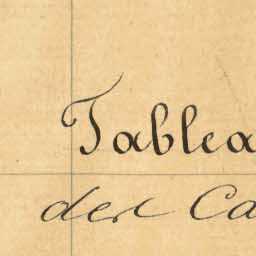 Tablea
des Ca